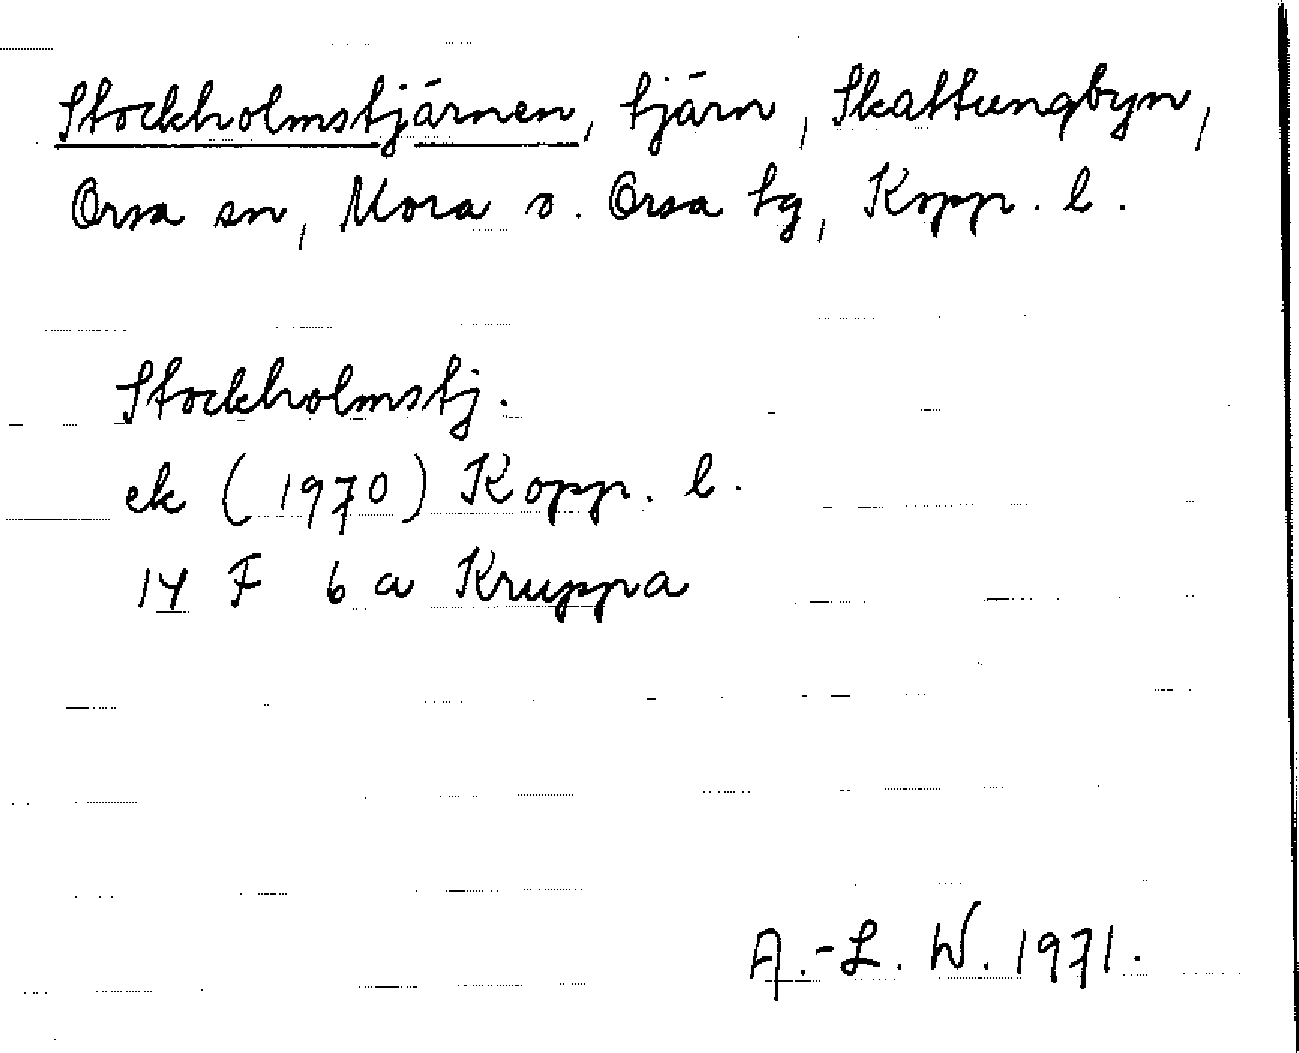 Stockholmstjärnen, tjärn, Skattungbyn,
Orsa sn, Mora o. Orsa tg, Kopp. l.
Stockholmstj.
ek (1970) Kopp. l.
14 F 6 a Kruppa
A.-L. W. 1971.